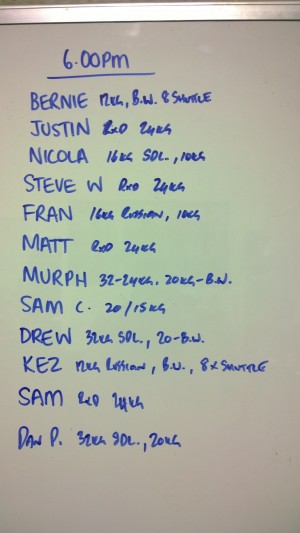 6.00PM
BERNIE 12KG, B.W. 8 SHUTTLE
JUSTIN RXD 24KG
NICOLA 16KG SDL., 10KG
STEVE W RXD 24KG
FRAN 16KG RUSSIAN, 10KG
MATT RXD 24KG
MURPH 32-24KG. 20KG-B.W.
SAM C. 20/15KG
DREW 32KG SDL., 20-B.W.
KEZ 12KG RUSSIAN, B.W., 8 X SHUTTLE
SAM RXD 24KG
DAN P. 32KG SDL., 20KG